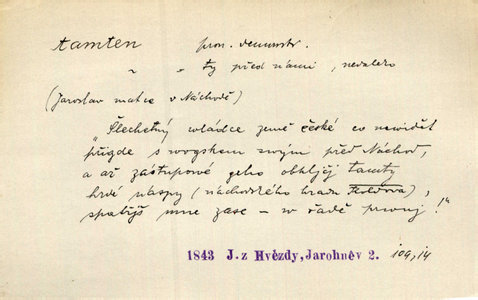 tamten pron. demonstr.
~ " ty před námi, nedaleko
(Jaroslav matce v Náchodě)
„Šlechetný wládce země české co newidět
přigde s wogskem swým před Náchod,
a až zástupowé geho obkljčj tamty
hrdé náspy (náchodského hradu),
spatřjš mne zase – w řadě prwnj!"
1843 J. z Hvězdy, Jarohněv 2. 109,14